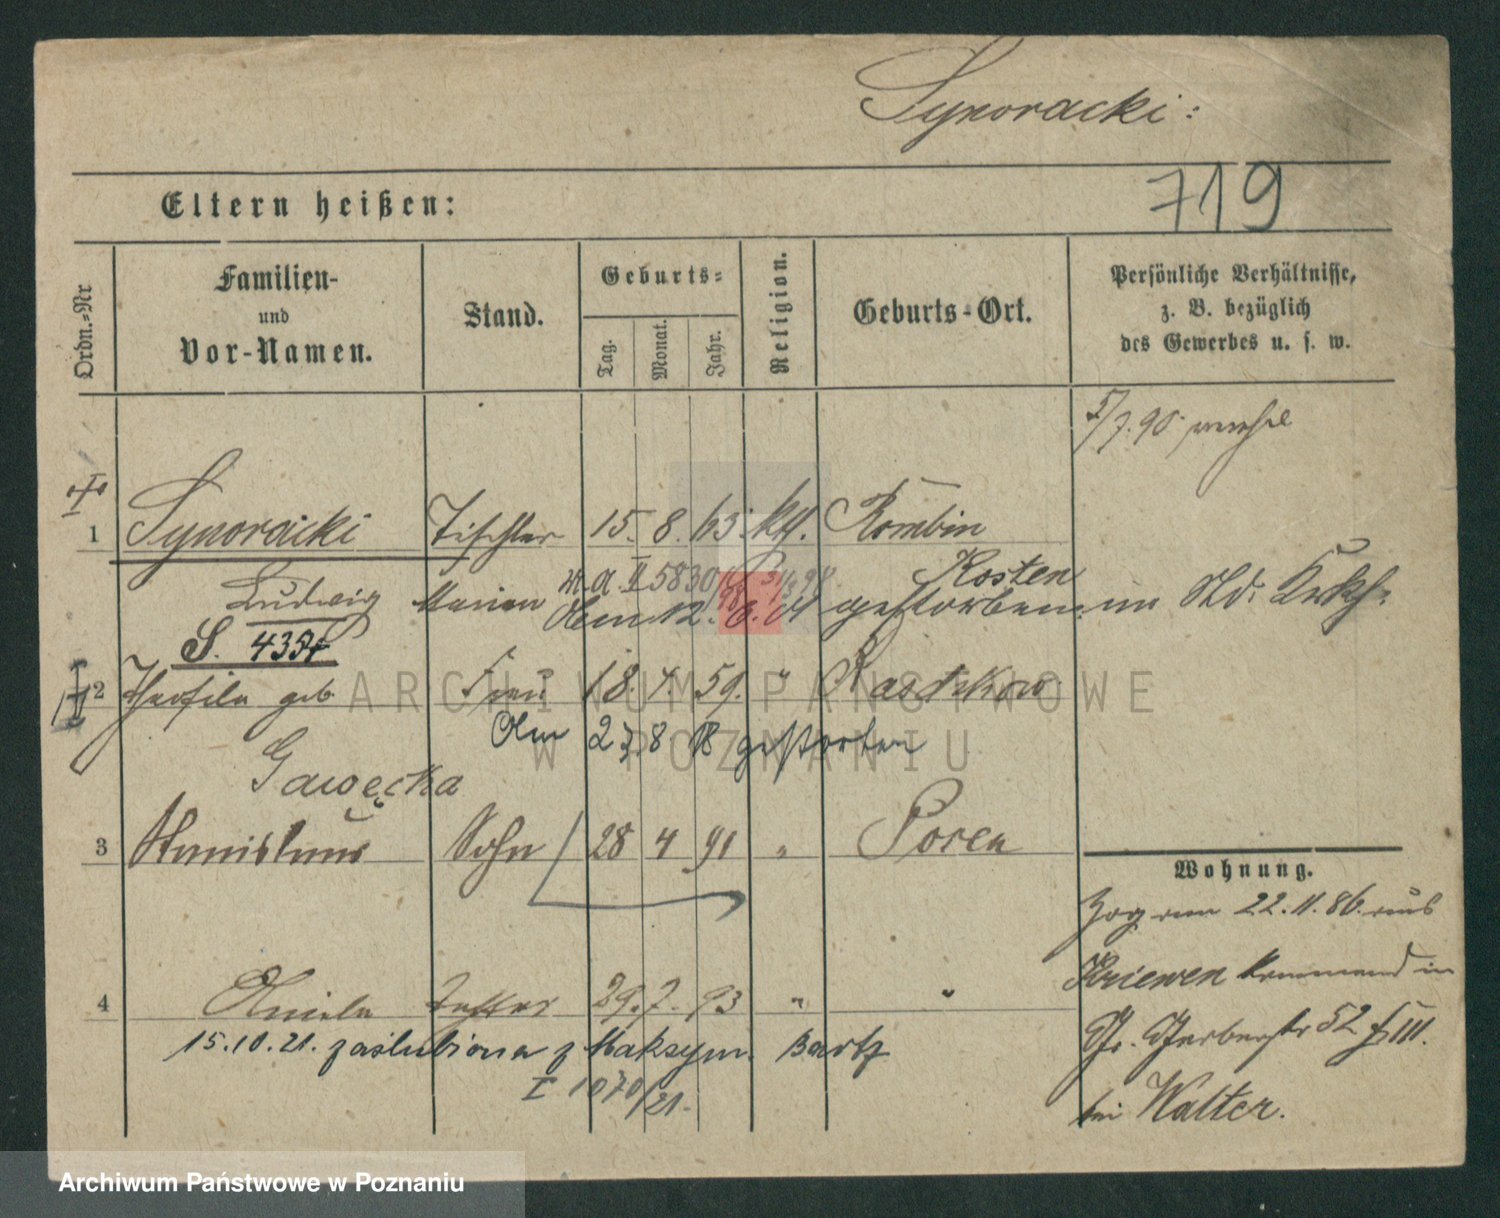 Synoracki:
719
Eltern heißen:
Ordn.-Nr
Familien-
und
Vor-Namen.
Stand.
Geburts-
Tag.
Monat.
Jahr.
Religion.
Geburts-Ort.
Persönliche Verhältnisse,
z. B. bezüglich
des Gewerbes u. s. w.
5/7.90
1 Synoracki Tischler 15. 8. 63. kth. Rombin
Kosten
Ludwig
Am 12. 6. 01 gestorben im Std. Krkh.
S. 4354
2 geb. Frau 18. 4. 59. " Raschkow
Am 27. 8 18 gestorben
Gawęcka
3 Stanislaus Sohn 28 4 91 " Posen
Wohnung.
Zog am 22.11.86. aus
Kriewen kommend in
52
bei Walter.
4 Tochter 29. 7. 93 " "
15.10.21. zaślubiona z Maksym. Bartz
I 1070/21.
ARCHIWUM PAŃSTWOWE
W POZNANIU
Archiwum Państwowe w Poznaniu